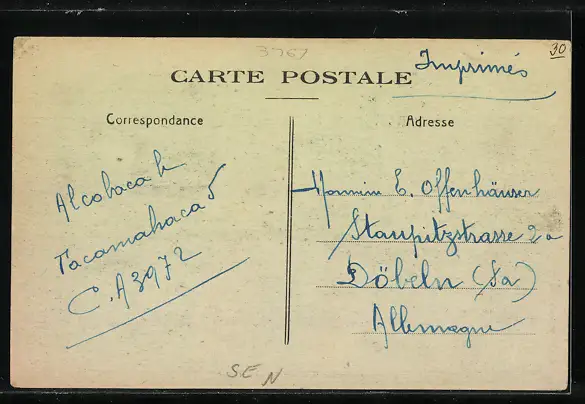 3767
30
Imprimés
CARTE POSTALE
Correspondance
Adresse
Alcobaca h
Tacamahaca 5
C.A 3972
E. Offenhäuser
Staupitzstrasse 2a
Döbeln (Sa)
Allemagne
S.E N